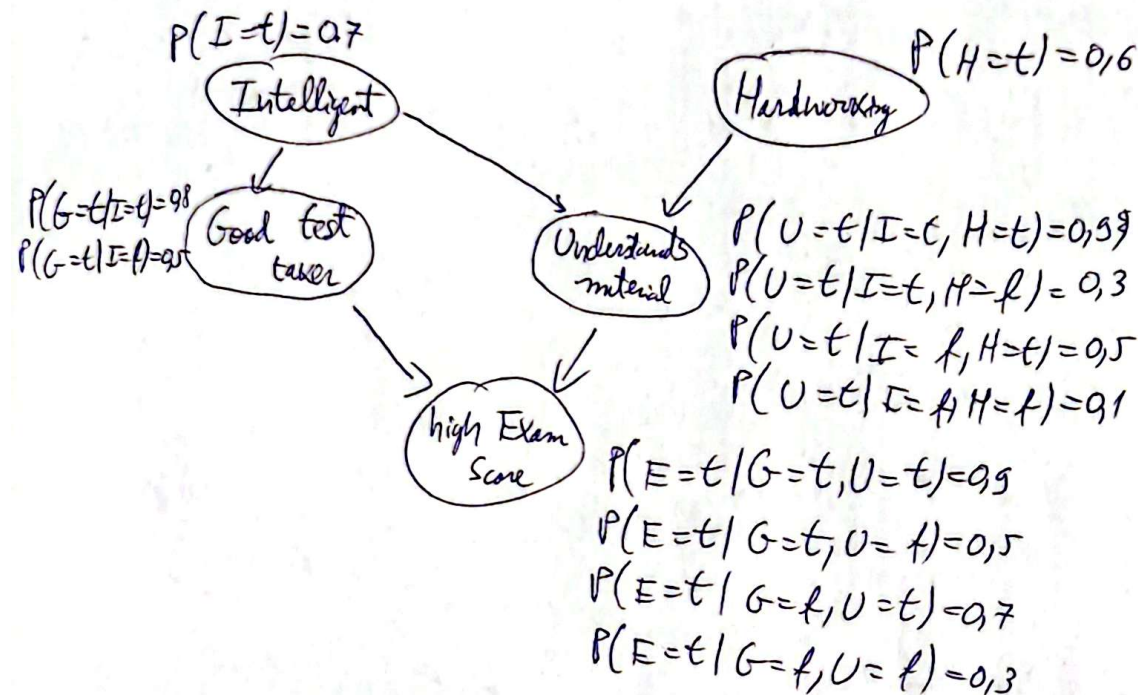 P(I=t)=0.7
P(H=t)=0,6
Intelligent
Hardworking
P(G=t|I=t)=0,8
P(G=t|I=f)=0,5
Good test
taker
Understands
material
P(U=t|I=t, H=t)=0,99
P(U=t|I=t, H=f)=0,3
P(U=t|I=f, H=t)=0,5
P(U=t|I=f, H=f)=0,1
high Exam
Score
P(E=t|G=t, U=t)=0,9
P(E=t|G=t, U=f)=0,5
P(E=t|G=f, U=t)=0,7
P(E=t|G=f, U=f)=0,3